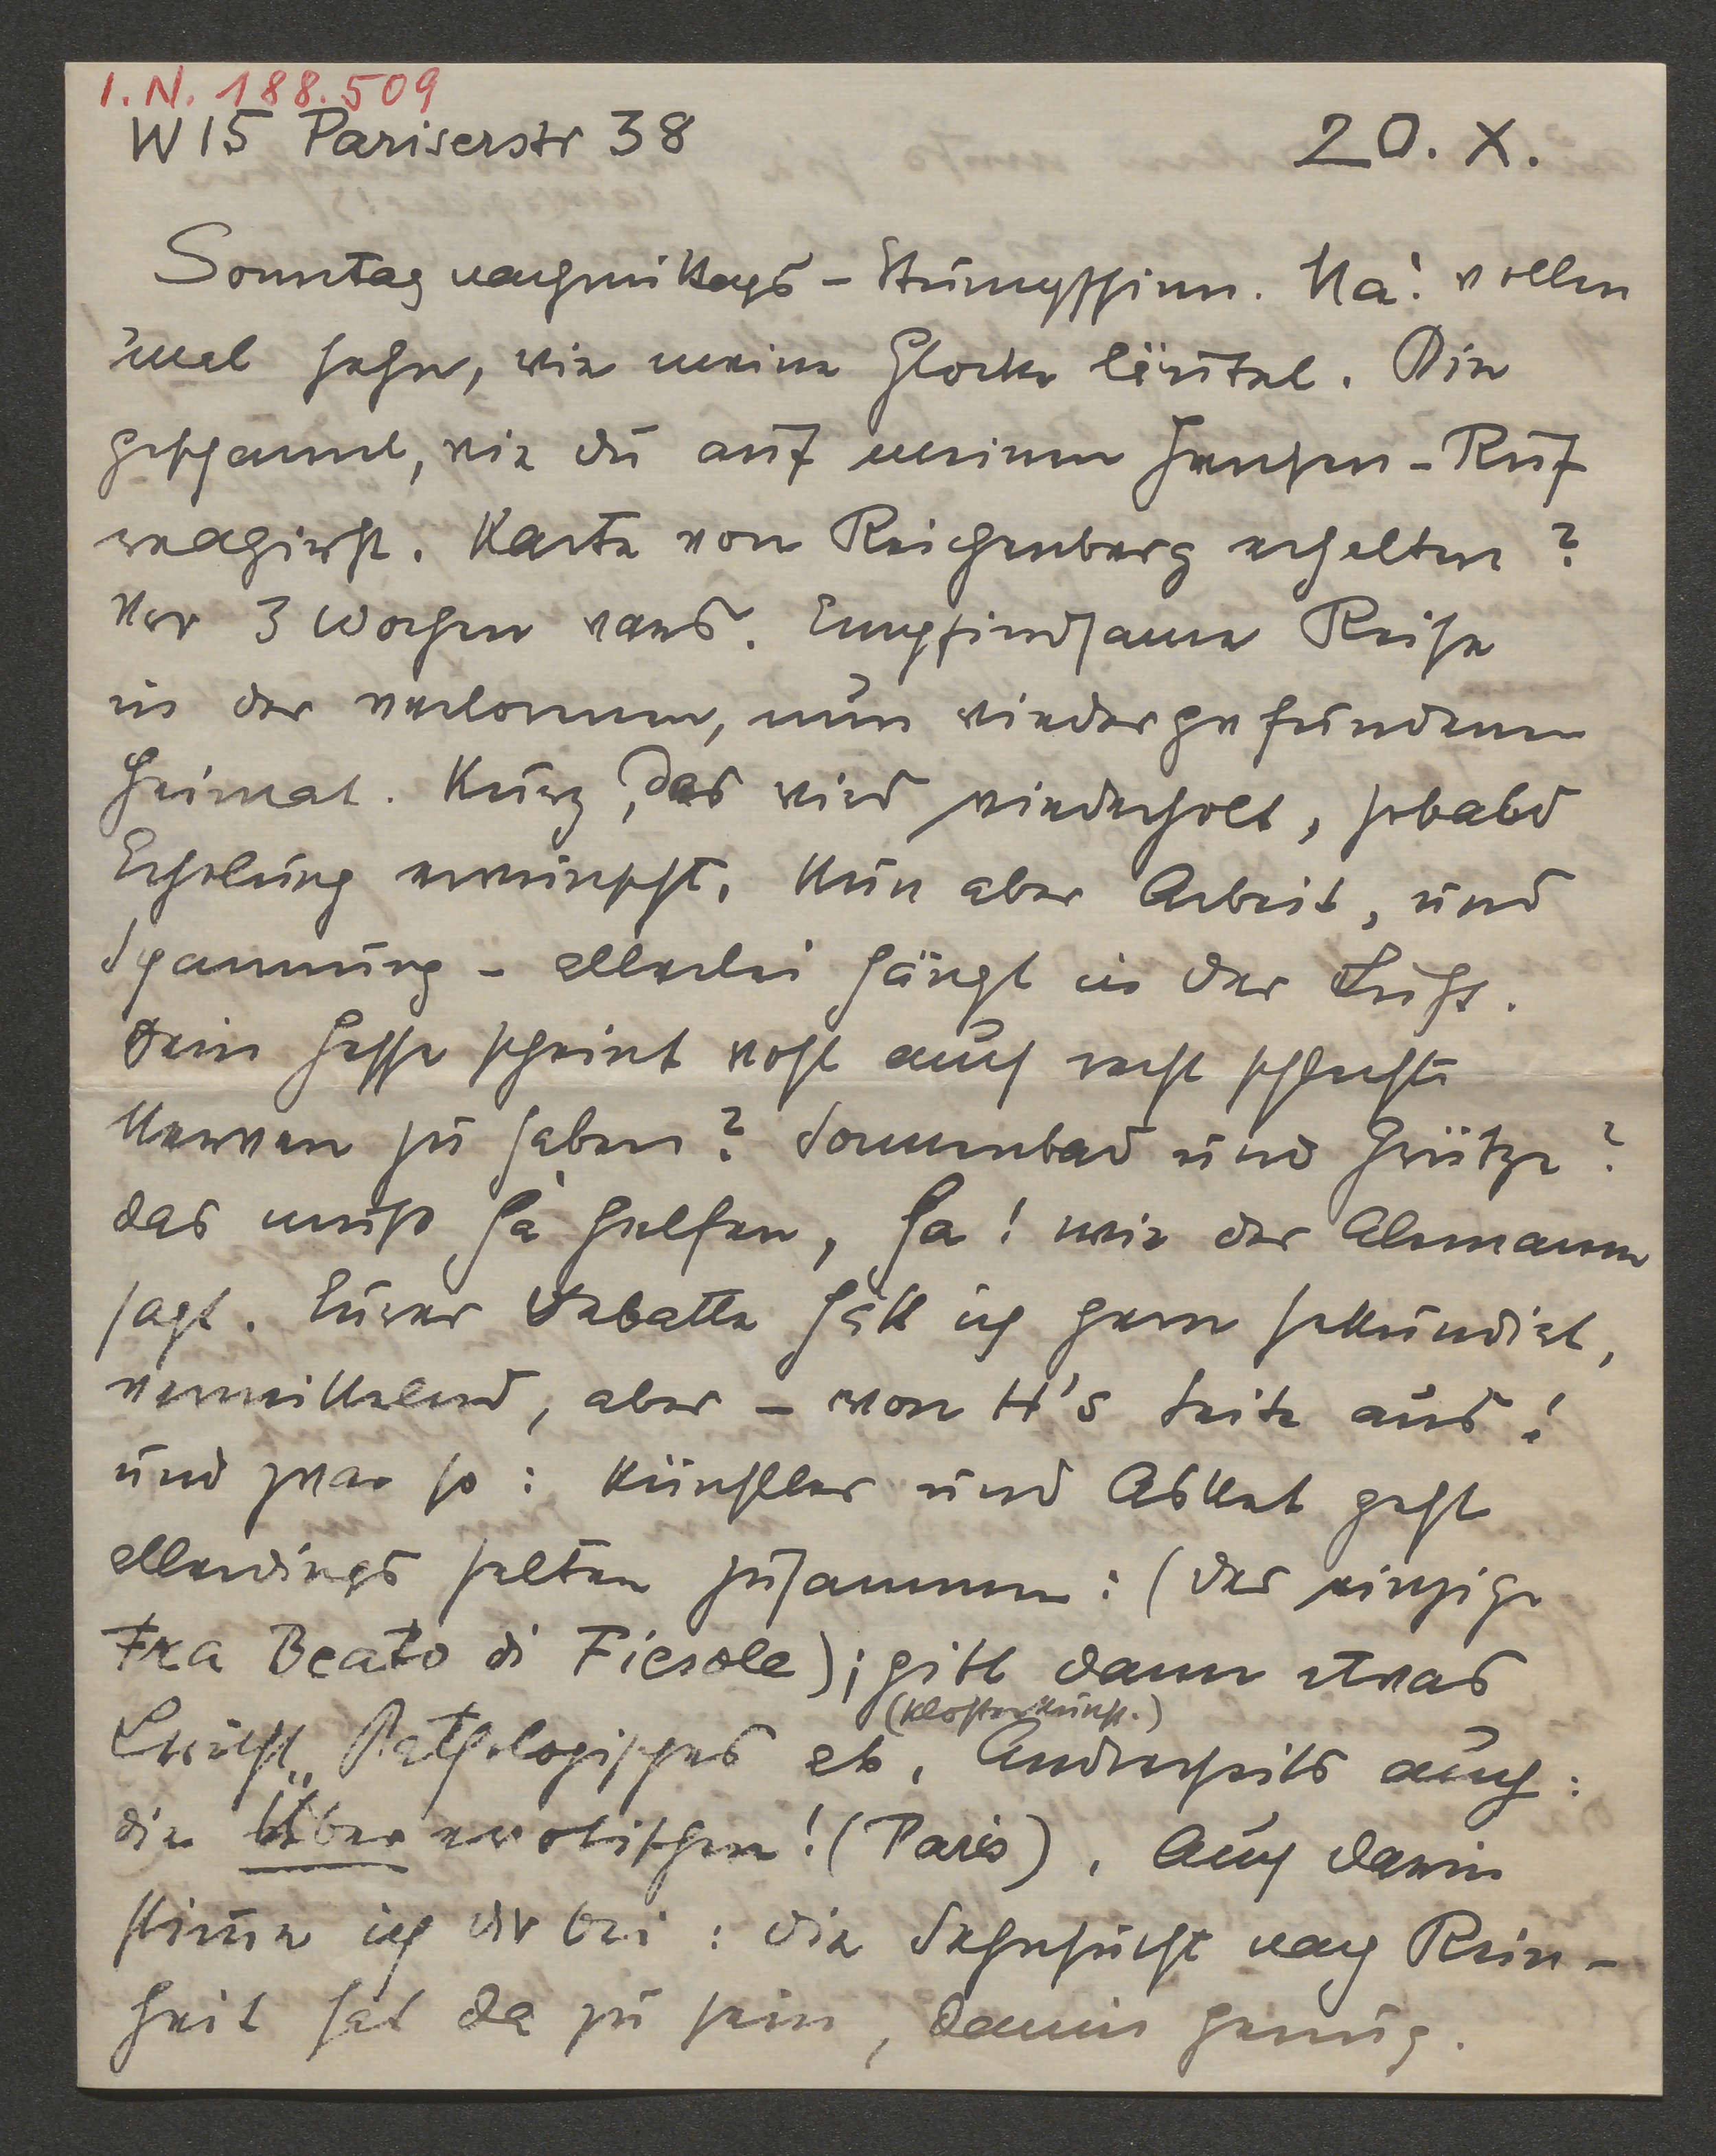 I.N. 188.509
W15 Pariserstr 38 20. X.
Sonntag nachmittags-Stumpfsinn. Na! wollen
mal sehn, wie meine Glocke läutet. Bin
gespannt, wie du auf meinen Hansen-Ruf
reagierst. Karte von Reichenberg erhalten?
Vor 3 Wochen war's. Empfindsame Reise
in der verlornen, nun wiedergefundenen
Heimat. Kurz, das wird wiederholt, sobald
Erholung erwünscht. Nun aber Arbeit, und
Spannung - allerlei hängt in der Luft.
Dein Hesse scheint wohl auch recht schlechte
Nerven zu haben? Sonnenbad und Grütze?
das muß ja helfen, ha! wie der Alemanne
sagt. Eurer Debatte hätt ich gern sekundiert,
vermittelnd, aber - von H's Seite aus!
und zwar so: Künstler und Asket geht
allerdings selten zusammen: (der einzige
Fra Beato di Fiesole); gibt dann etwas
(Klosterkunst.)
Pathologisches ab. Anderseits auch:
die Übererotischen! (Paris). Auch darin
stimme ich dir bei: die Sehnsucht nach Rein-
heit hat da zu sein, damit genug.